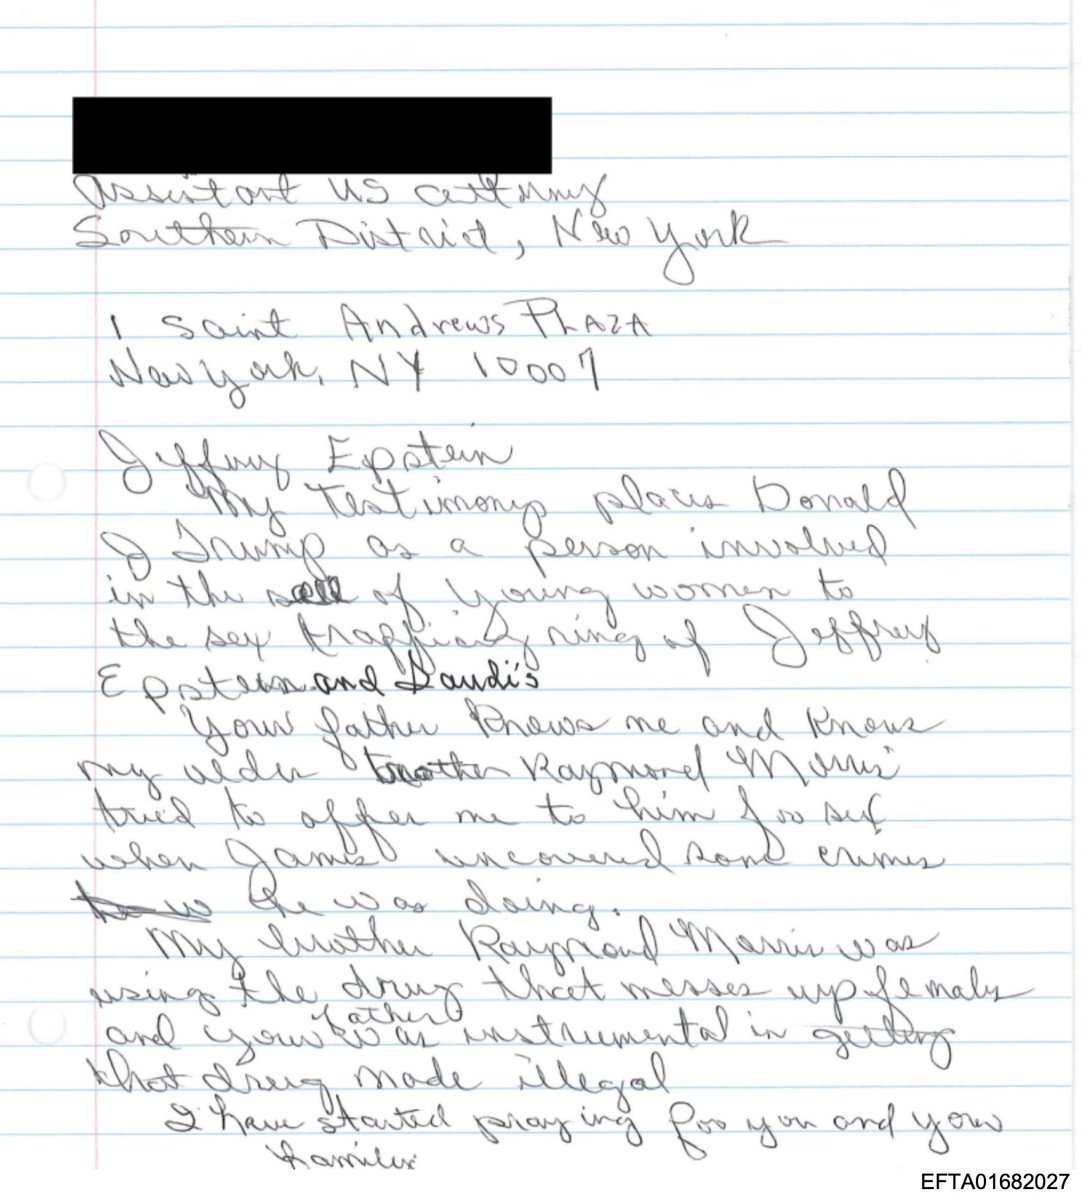 Assistant US attorney
Southern District, New York
1 Saint Andrews PLAZA
New York, NY 10007
Jeffrey Epstein
My testimony places Donald
J Trump as a person involved
in the sell of young women to
the sex trafficing ring of Jeffrey
Epstein and Saudi's
Your father knows me and knows
my older brother Raymond Morris
tried to offer me to him for sex
when James uncovered some crimes
he was doing.
My brother Raymond Morris was
using the drug that messes up females
and your father was instrumental in getting
that drug made illegal
I have started praying for you and your
families
EFTA01682027